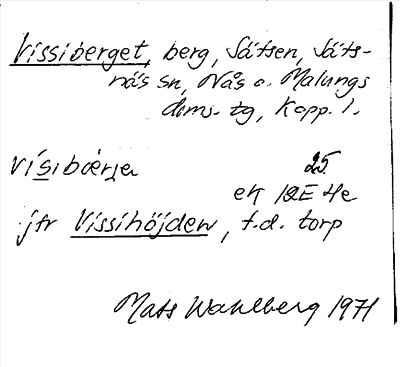 Vissiberget, berg, Sätsen, Säts-
näs sn, Nås o. Malungs
doms. tg, Kopp. l.
visibærje
25.
ek 12E 4e
jfr Vissihöjden, f.d. torp
Mats Wahlberg 1971